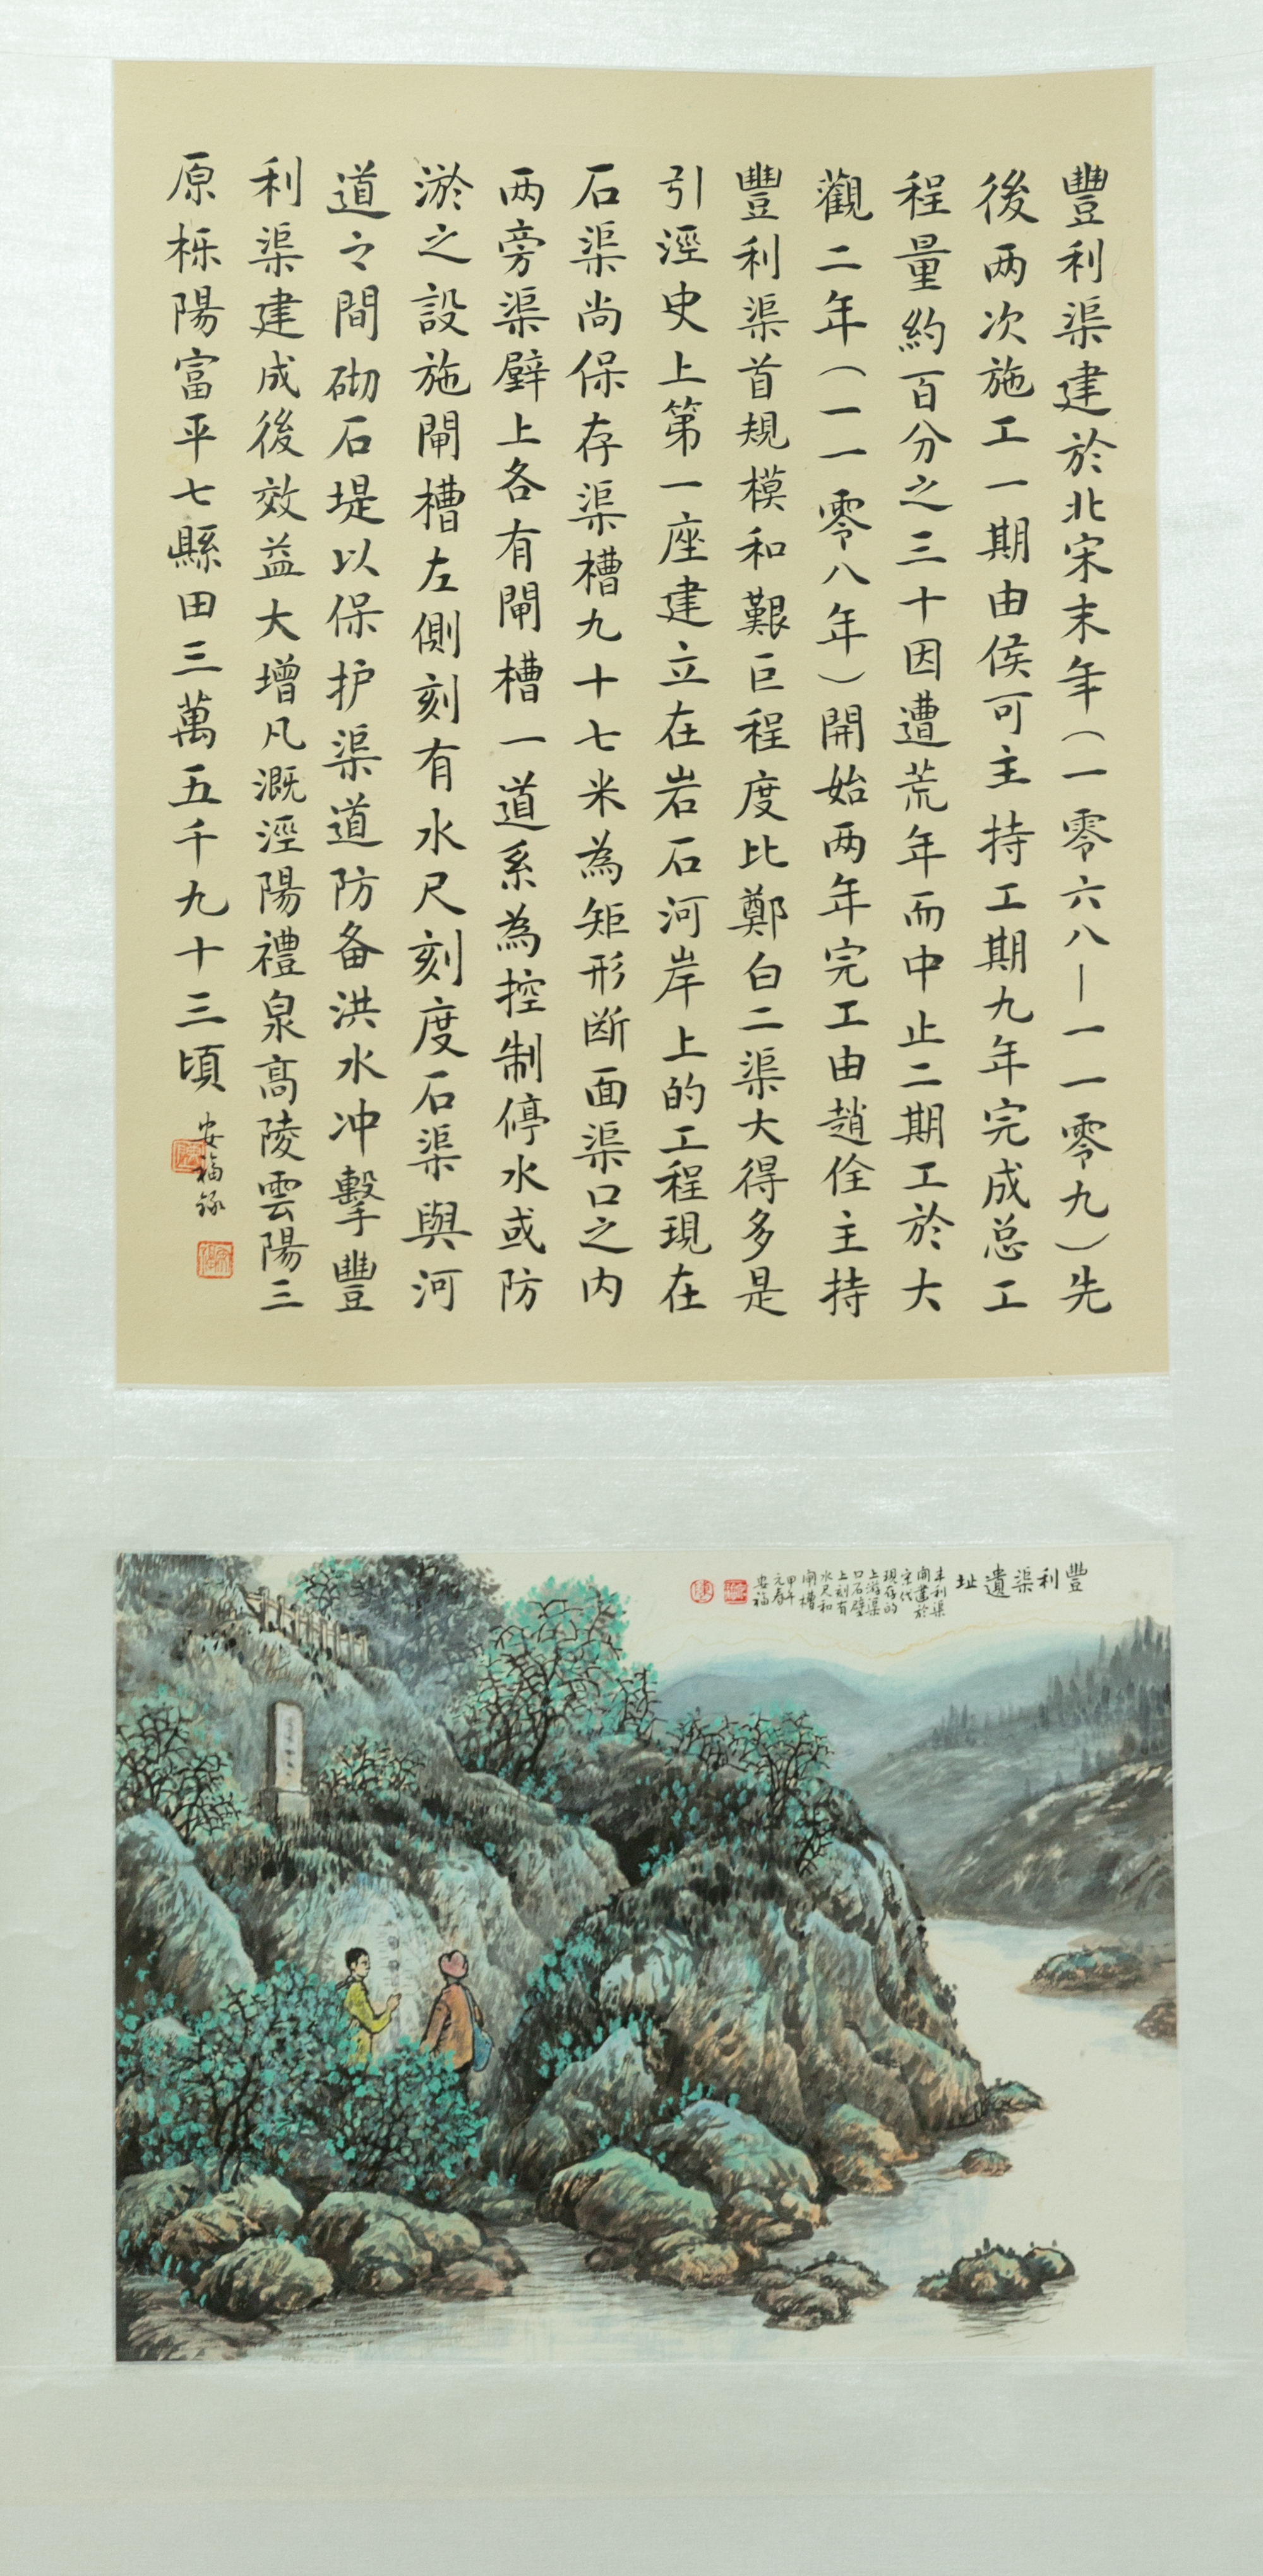 豐利渠建於北宋末年（一零六八—一一零九）先
後两次施工一期由侯可主持工期九年完成总工
程量約百分之三十因遭荒年而中止二期工於大
觀二年（一一零八年）開始两年完工由趙佺主持
豐利渠首規模和艱巨程度比鄭白二渠大得多是
引涇史上第一座建立在岩石河岸上的工程現在
石渠尚保存渠槽九十七米為矩形断面渠口之内
两旁渠壁上各有閘槽一道系為控制停水或防
淤之設施閘槽左側刻有水尺刻度石渠與河
道之間砌石堤以保护渠道防备洪水冲擊豐
利渠建成後效益大增凡溉涇陽禮泉高陵雲陽三
原栎陽富平七縣田三萬五千九十三頃
安福錄
豐利渠遺址
丰利渠
開建於
宋代
現存的
上游渠
口石壁
上刻有
水尺和
閘槽
甲午
元春
安福